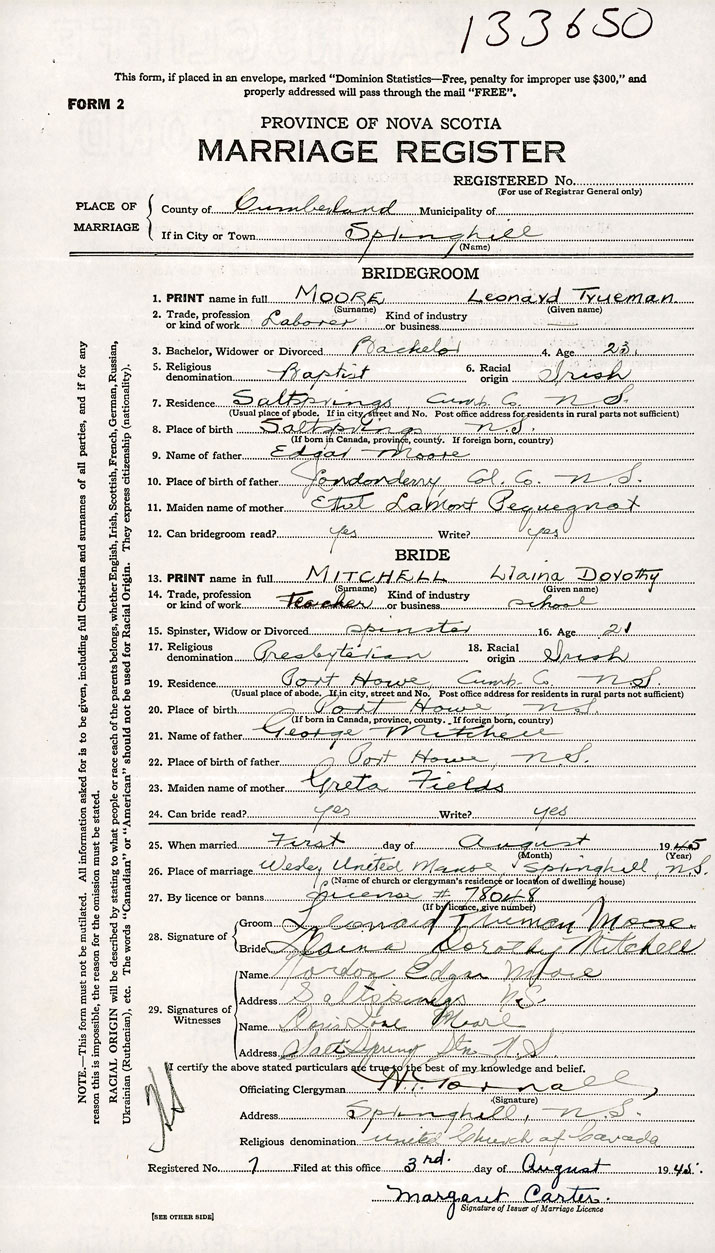 133650
This form, if placed in an envelope, marked "Dominion Statistics—Free, penalty for improper use $300," and
properly addressed will pass through the mail "FREE".
FORM 2
PROVINCE OF NOVA SCOTIA
MARRIAGE REGISTER
REGISTERED No.
(For use of Registrar General only)
PLACE OF MARRIAGE
County of Cumberland Municipality of
If in City or Town Springhill
(Name)
BRIDEGROOM
1. PRINT name in full MOORE Leonard Trueman
(Surname) (Given name)
2. Trade, profession or kind of work Laborer Kind of industry or business —
3. Bachelor, Widower or Divorced Bachelor 4. Age 23
5. Religious denomination Baptist 6. Racial origin Irish
7. Residence Saltsprings Cumb. Co. N.S.
(Usual place of abode. If in city, street and No. Post office address for residents in rural parts not sufficient)
8. Place of birth Saltsprings N.S.
(If born in Canada, province, county. If foreign born, country)
9. Name of father Edgar Moore
10. Place of birth of father Londonderry, Col. Co. N.S.
11. Maiden name of mother Ethel LaMont Pequegnat
12. Can bridegroom read? yes Write? yes
BRIDE
13. PRINT name in full MITCHELL Llaina Dorothy
(Surname) (Given name)
14. Trade, profession or kind of work Teacher Kind of industry or business school
15. Spinster, Widow or Divorced spinster 16. Age 21
17. Religious denomination Presbyterian 18. Racial origin Irish
19. Residence Port Howe Cumb. Co. N.S.
(Usual place of abode. If in city, street and No. Post office address for residents in rural parts not sufficient)
20. Place of birth Port Howe N.S.
(If born in Canada, province, county. If foreign born, country)
21. Name of father George Mitchell
22. Place of birth of father Port Howe, N.S.
23. Maiden name of mother Greta Fields
24. Can bride read? yes Write? yes
25. When married First day of August 1945
(Month) (Year)
26. Place of marriage Wesley United Manse, Springhill, N.S.
(Name of church or clergyman's residence or location of dwelling house)
27. By licence or banns License # 78048
(If by licence, give number)
28. Signature of
Groom Leonard Trueman Moore.
Bride Llaina Dorothy Mitchell
29. Signatures of Witnesses
Name Gordon Edgar Moore
Address Saltsprings N.S.
Name Moore
Address Salt Spring Stn N.S.
I certify the above stated particulars are true to the best of my knowledge and belief.
Officiating Clergyman
(Signature)
Address Springhill, N.S.
Religious denomination United Church of Canada
Registered No. 7 Filed at this office 3rd. day of August 1945.
Margaret Carter.
Signature of Issuer of Marriage Licence
[SEE OTHER SIDE]
NOTE.—This form must not be mutilated. All information asked for is to be given, including full Christian and surnames of all parties, and if for any
reason this is impossible, the reason for the omission must be stated.
RACIAL ORIGIN will be described by stating to what people or race each of the parents belongs, whether English, Irish, Scottish, French, German, Russian,
Ukrainian (Ruthenian), etc. The words "Canadian" or "American" should not be used for Racial Origin. They express citizenship (nationality).